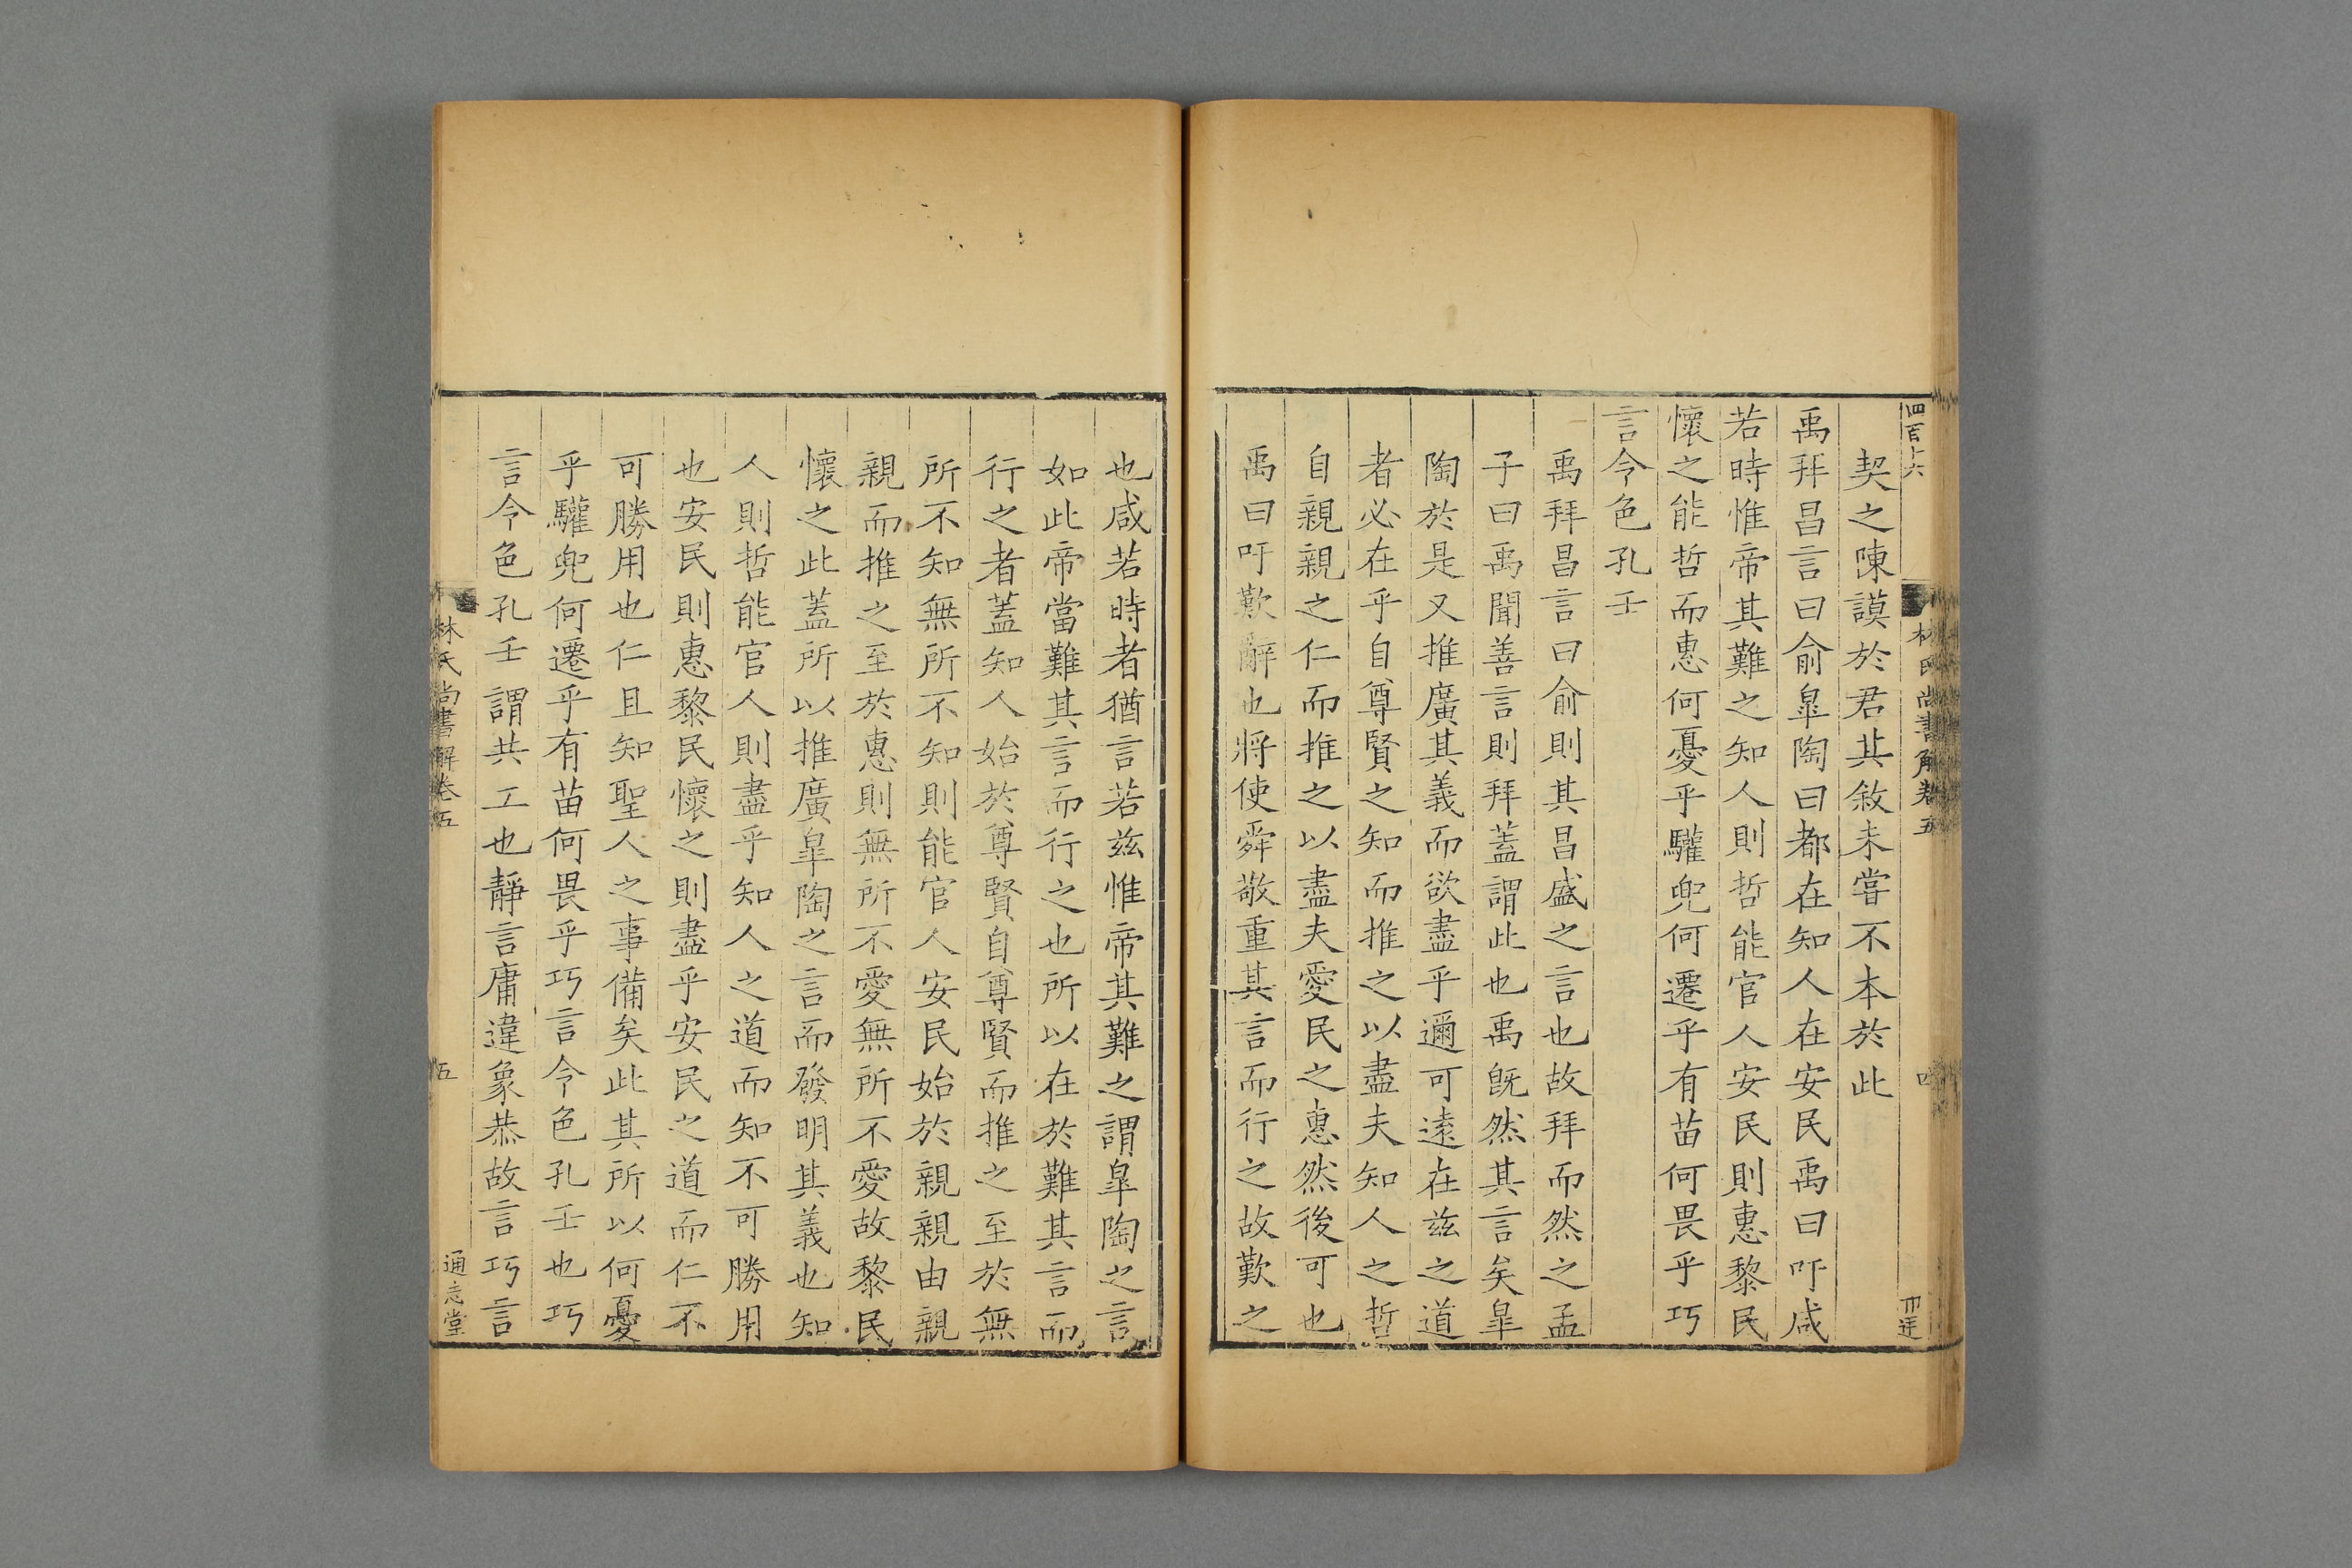 四百十六
林氏尚書解卷五
四
契之陳謨於君其敘未嘗不本於此
禹拜昌言曰俞皐陶曰都在知人在安民禹曰吁咸
若時惟帝其難之知人則哲能官人安民則惠黎民
懷之能哲而惠何憂乎驩兜何遷乎有苗何畏乎巧
言令色孔壬
禹拜昌言曰俞則其昌盛之言也故拜而然之孟
子曰禹聞善言則拜蓋謂此也禹旣然其言矣皐
陶於是又推廣其義而欲盡乎邇可遠在茲之道
者必在乎自尊賢之知而推之以盡夫知人之哲
自親親之仁而推之以盡夫愛民之惠然後可也
禹曰吁歎辭也將使舜敬重其言而行之故歎之
也咸若時者猶言若茲惟帝其難之謂皐陶之言
如此帝當難其言而行之也所以在於難其言而
行之者蓋知人始於尊賢自尊賢而推之至於無
所不知無所不知則能官人安民始於親親由親
親而推之至於惠則無所不愛無所不愛故黎民
懷之此蓋所以推廣皐陶之言而發明其義也知
人則哲能官人則盡乎知人之道而知不可勝用
也安民則惠黎民懷之則盡乎安民之道而仁不
可勝用也仁且知聖人之事備矣此其所以何憂
乎驩兜何遷乎有苗何畏乎巧言令色孔壬也巧
言令色孔壬謂共工也靜言庸違象恭故言巧言
林氏尚書解卷五
五
通志堂